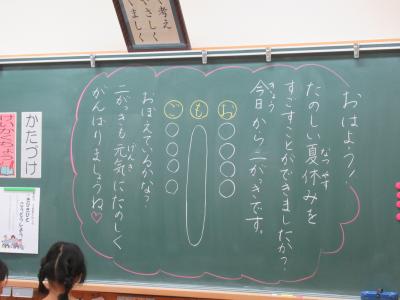 く考え
やさしく
ましく
おはよう！
たのしい夏休みを
なつやす
すごすことができましたか？
今日から二がっきです。
きょう
お○○○○
も
ご○○○○
おぼえているかな？
二がっきも元気にたのしく
げんき
がんばりましょうね♡
かたづけ